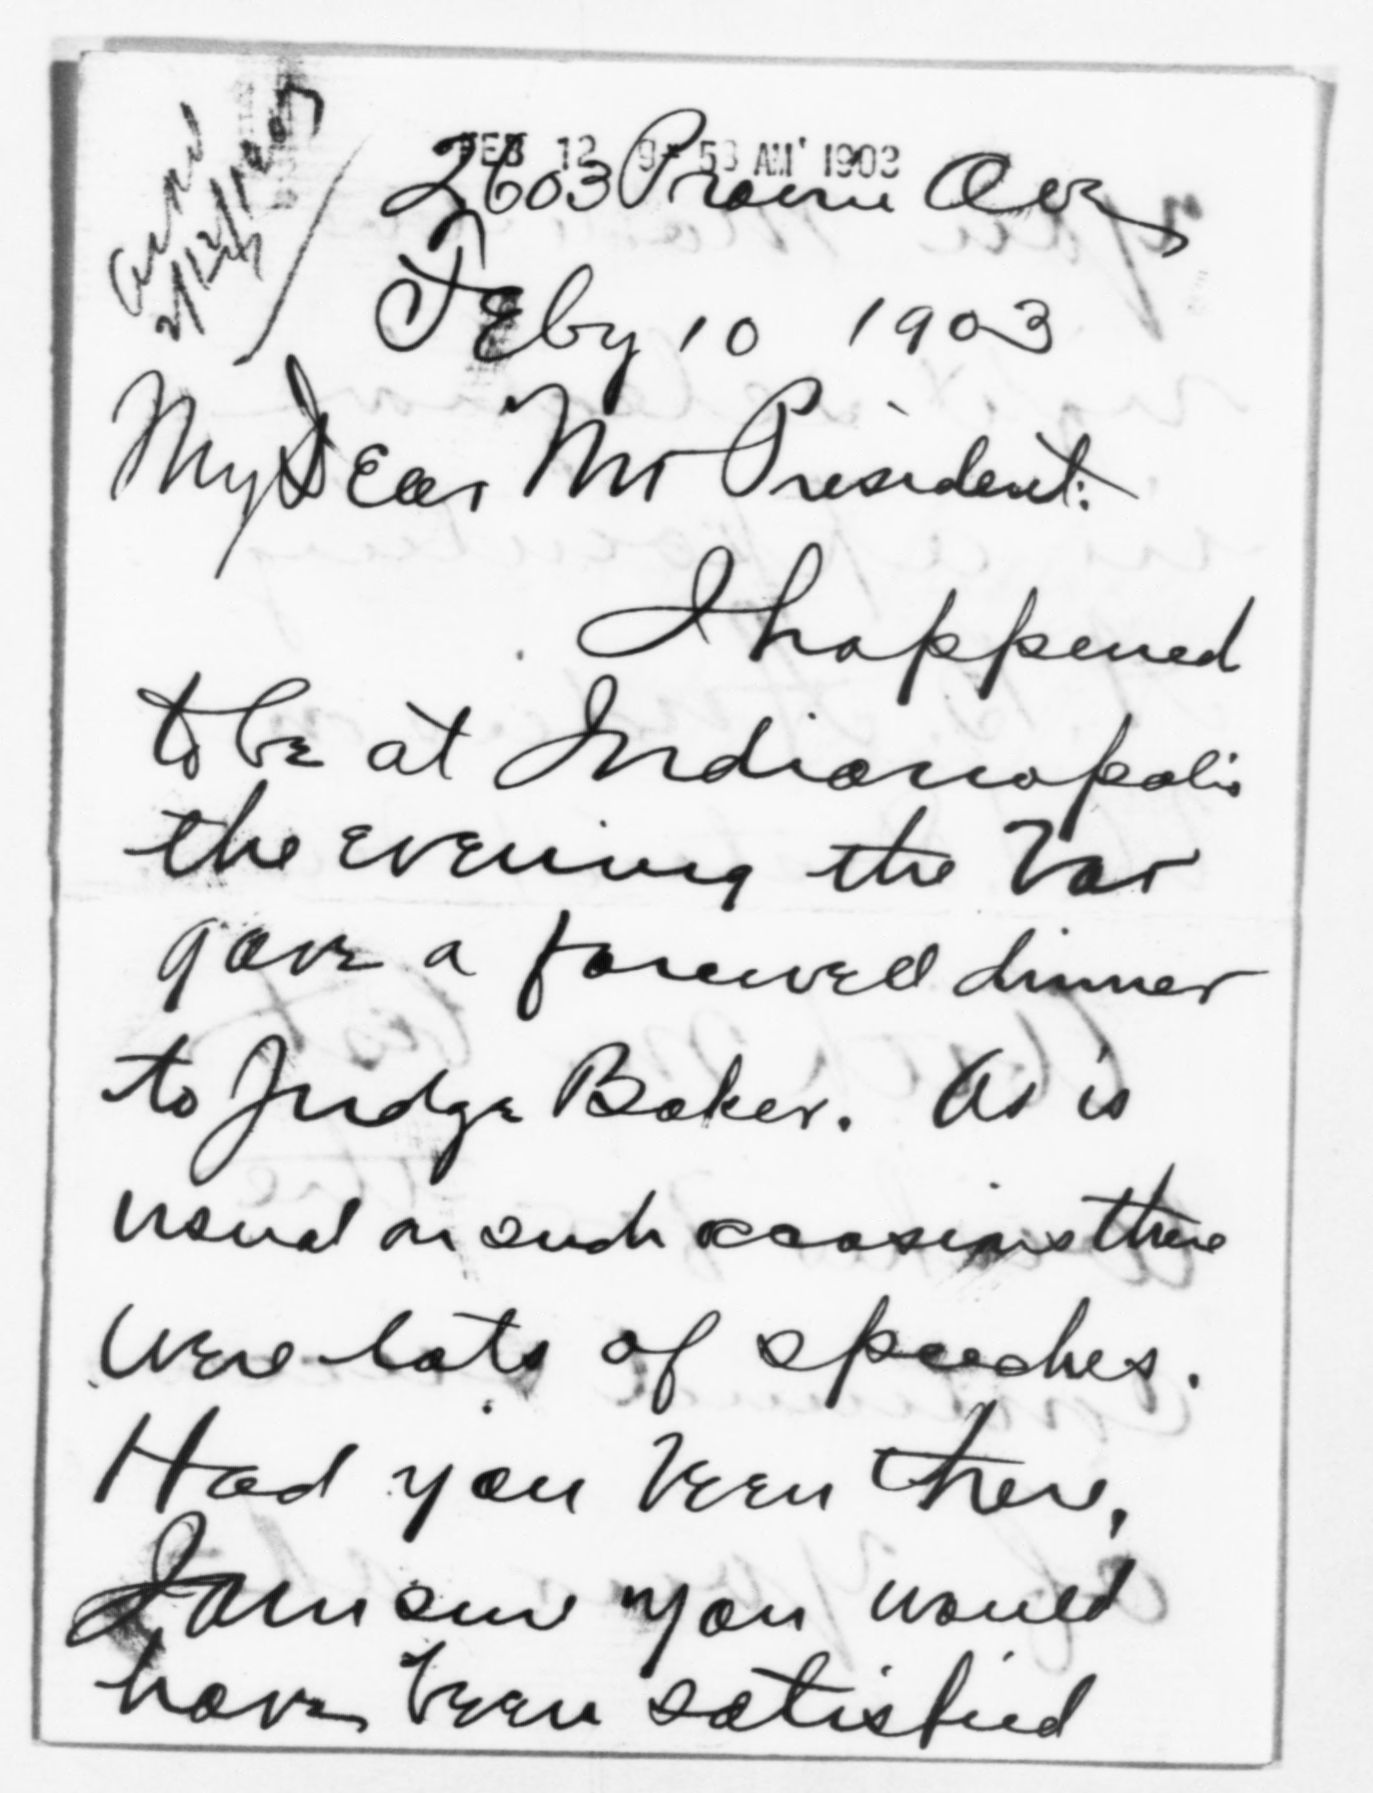 Ackd
2/12/1903
FEB 12 9 53 AM 1903
2603 Prairie Ave
Feby 10 1903
My Dear Mr President:
I happened
to be at Indianapolis
the evening the Bar
gave a farewell dinner
to Judge Baker. As is
usual on such occasions there
were lots of speeches.
Had you been there,
I am sure you would
have been satisfied